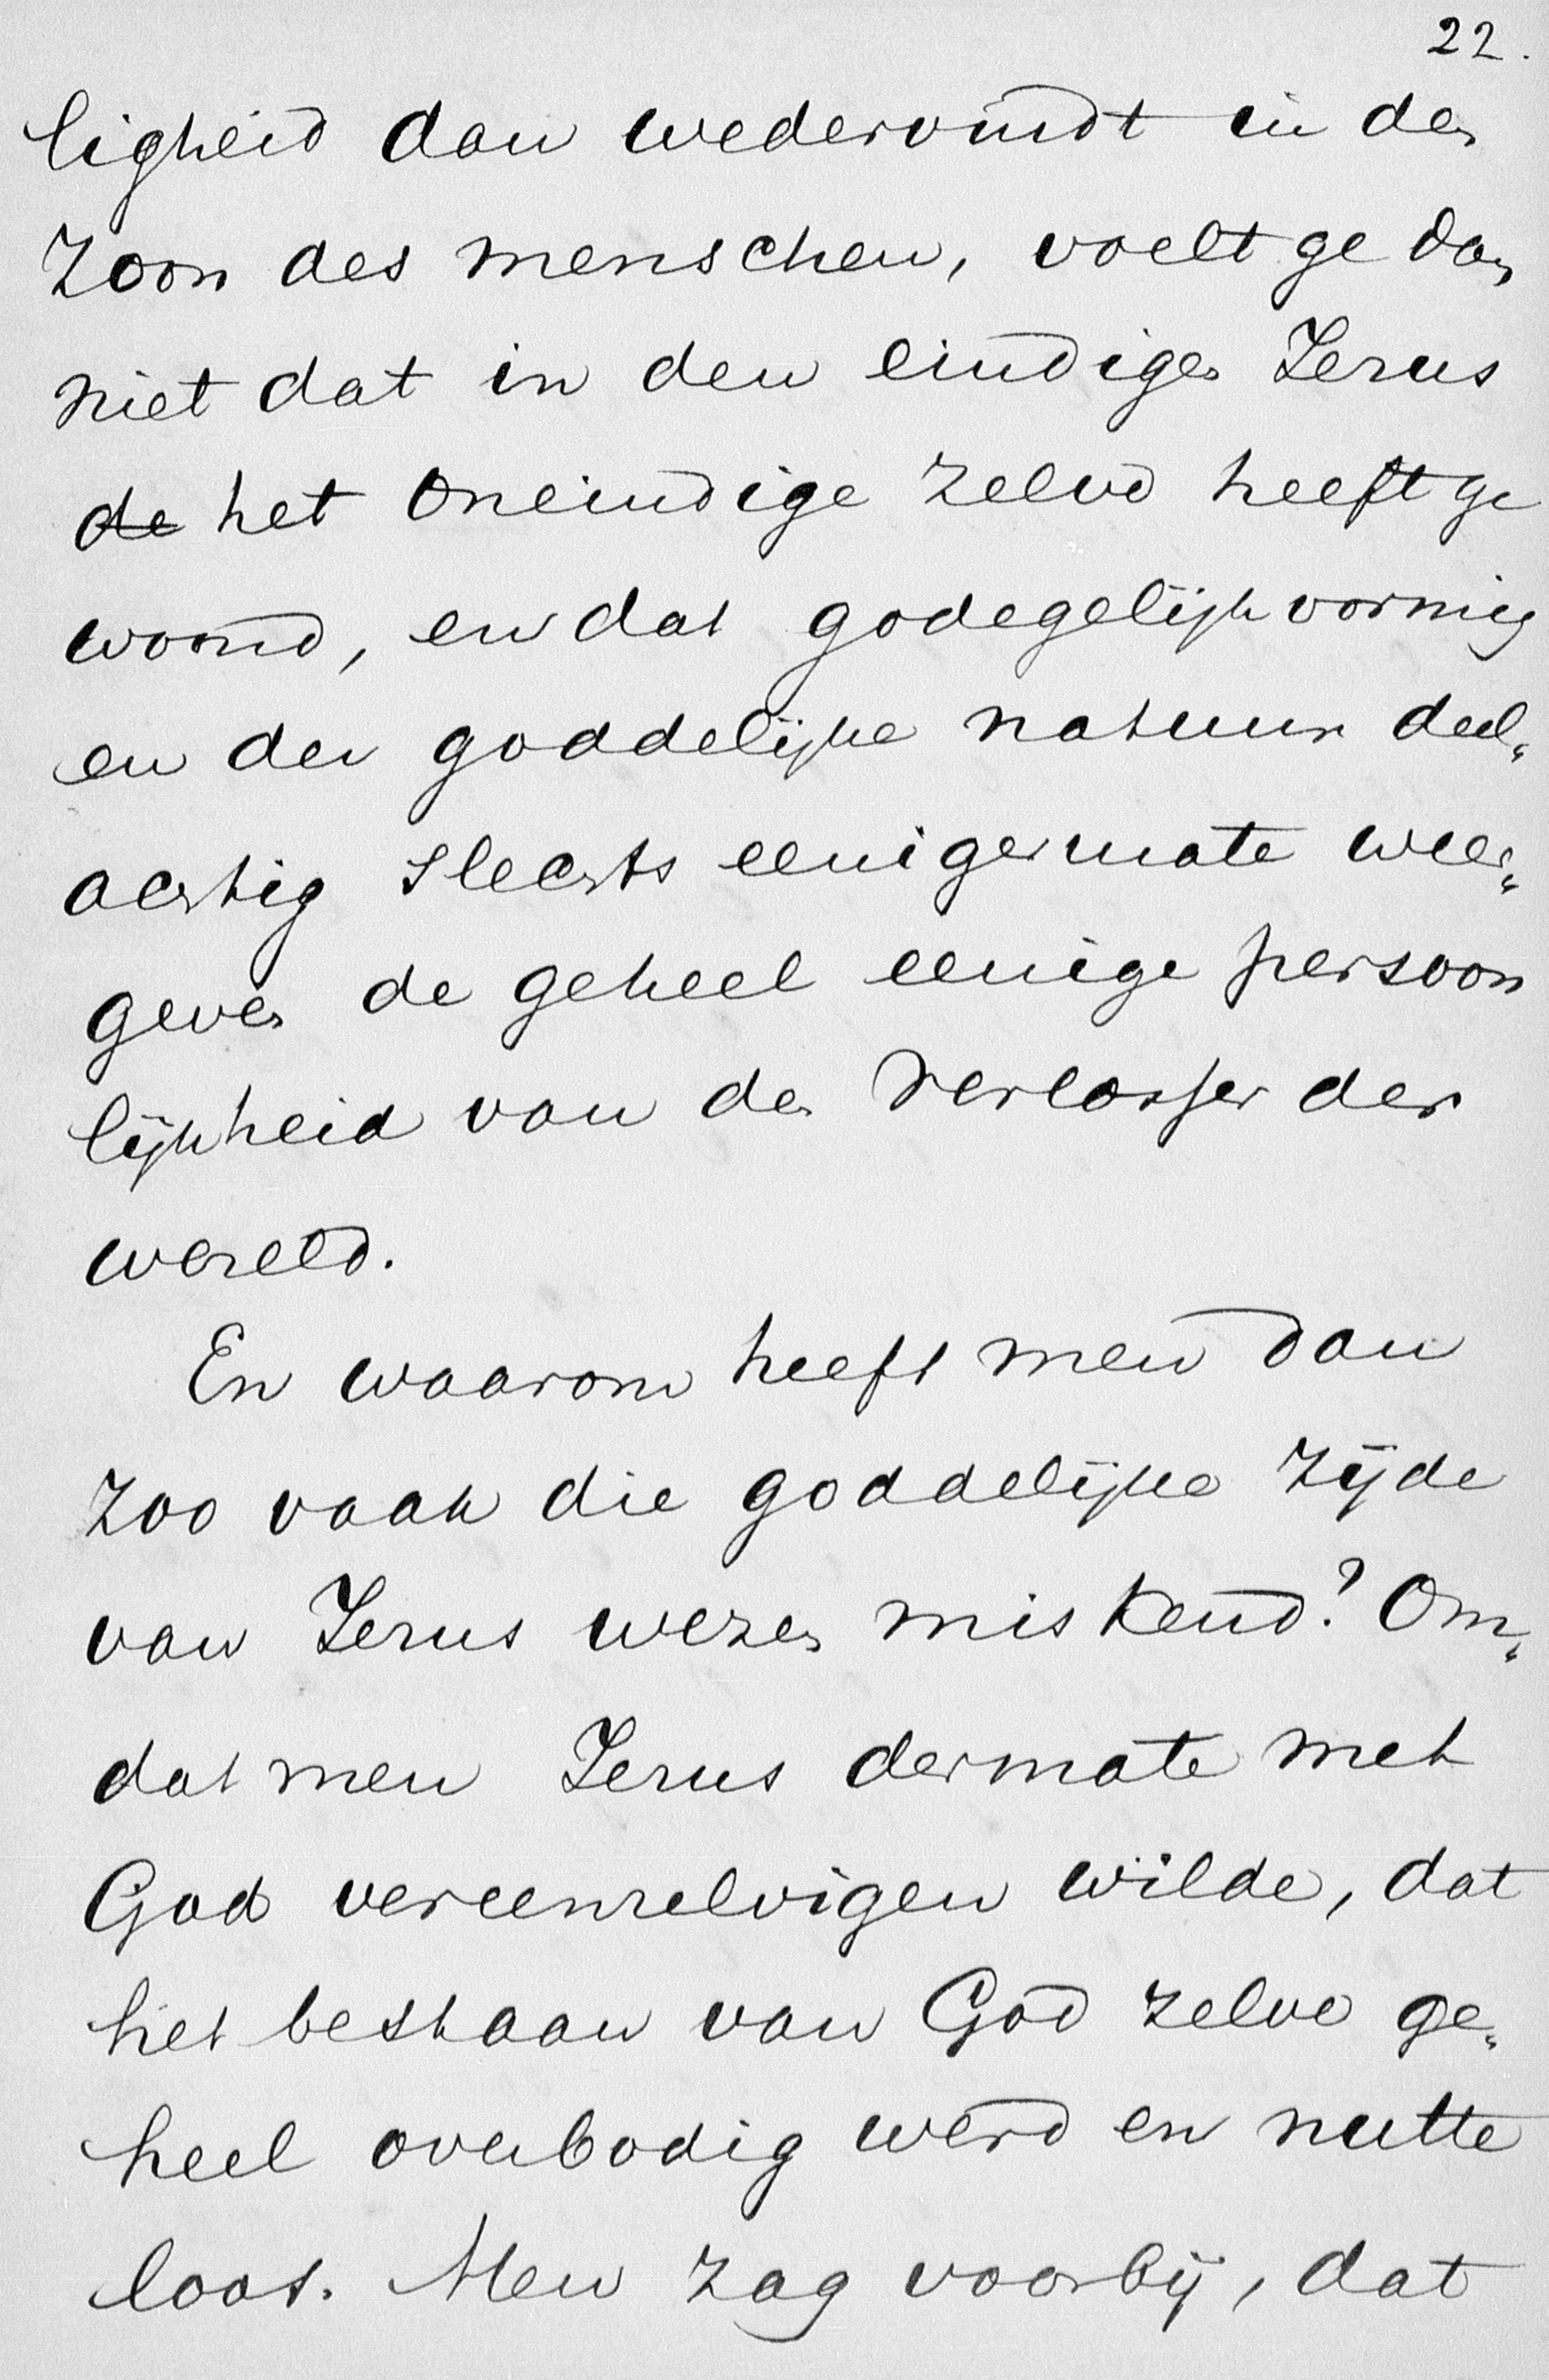 22.
ligheid dan wedervindt in den
Zoon des menschen, voelt ge dan
niet dat in den eindigen Jezus
de het Oneindige zelvd heeft ge
woond, en dat godegelijkvormig
en der goddelijke natuur deel„
achtig slechts eenigermate weer„
geven de geheel eenige persoon
lijkheid van den Verlosser der
wereld.
En waarom heeft men dan
zoo vaak die goddelijke zijde
van Jezus wezen miskend? Om„
dat men Jezus dermate met
God vereenzelvigen wilde, dat
het bestaan van God zelve ge„
heel overbodig werd en nutte
loos. Men zag voorbij, dat